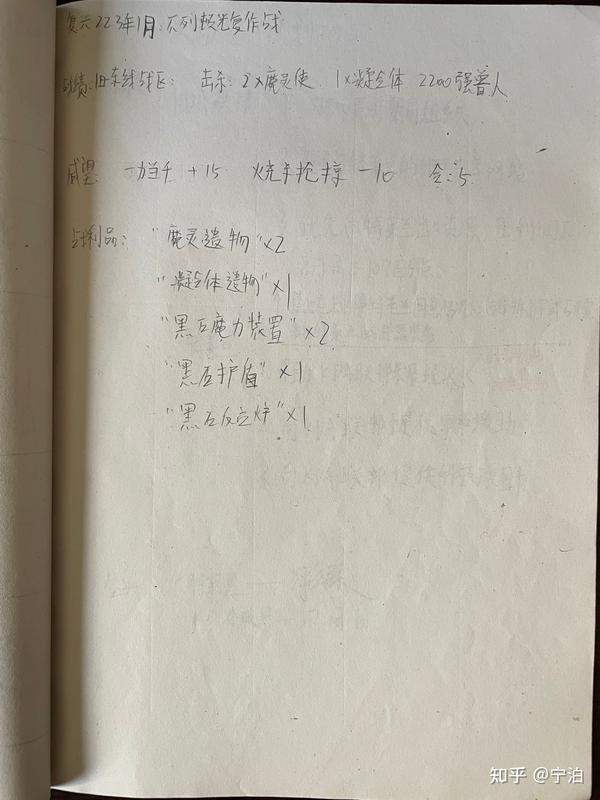 复元223年1月:不列颠光复作战
战绩:旧东线战区: 击杀:2×魔灵使 1×凝合体 2200强兽人
威望: 一力当千 +15 烧杀抢掠 -10 合:5
战利品: "魔灵遗物"×2
"凝合体遗物"×1
"黑石魔力装置"×2
"黑石护盾"×1
"黑石反应炉"×1
知乎 @宁泊